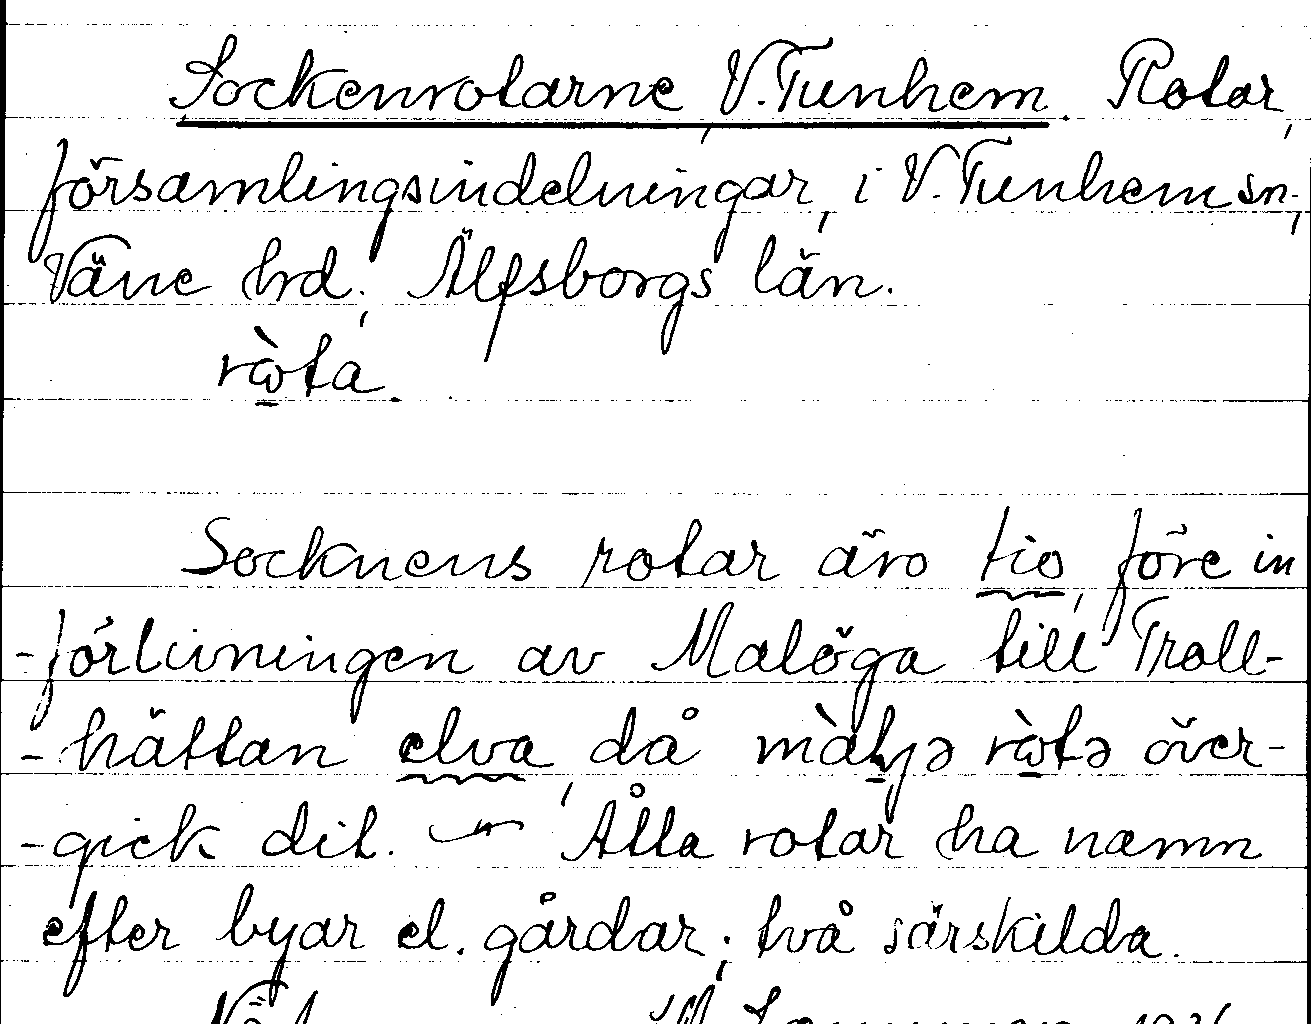 Sockenrotarne, V. Tunhem. Rotar,
församlingsindelningar, i V. Tunhem sn.,
Väne hrd, Älfsborgs län.
ròta.
Socknens rotar äro tio, före in
-förlivningen av Malöga till Troll-
-hättan elva, då màḷjə ròtə över-
-gick dit. — Alla rotar ha namn
efter byar el. gårdar; två särskilda.